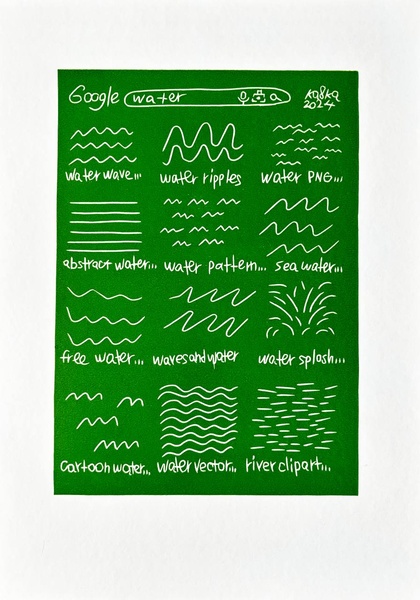 Google water kaska
2024
water wave... water ripples water PNG...
abstract water... water pattern... sea water...
free water... wavesandwater water splash...
cartoon water... water vector... river clipart...